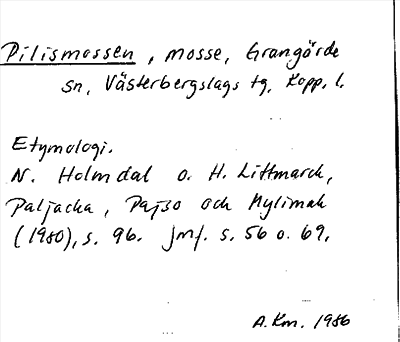 Pilismossen, mosse, Grangärde
sn, Västerbergslags tg, Kopp. l.
Etymologi.
N. Holmdal o. H. Littmarck,
Paljacka, Pajso och Mylimak
(1980), s. 96. Jmf. s. 56 o. 69.
A.Km. 1986